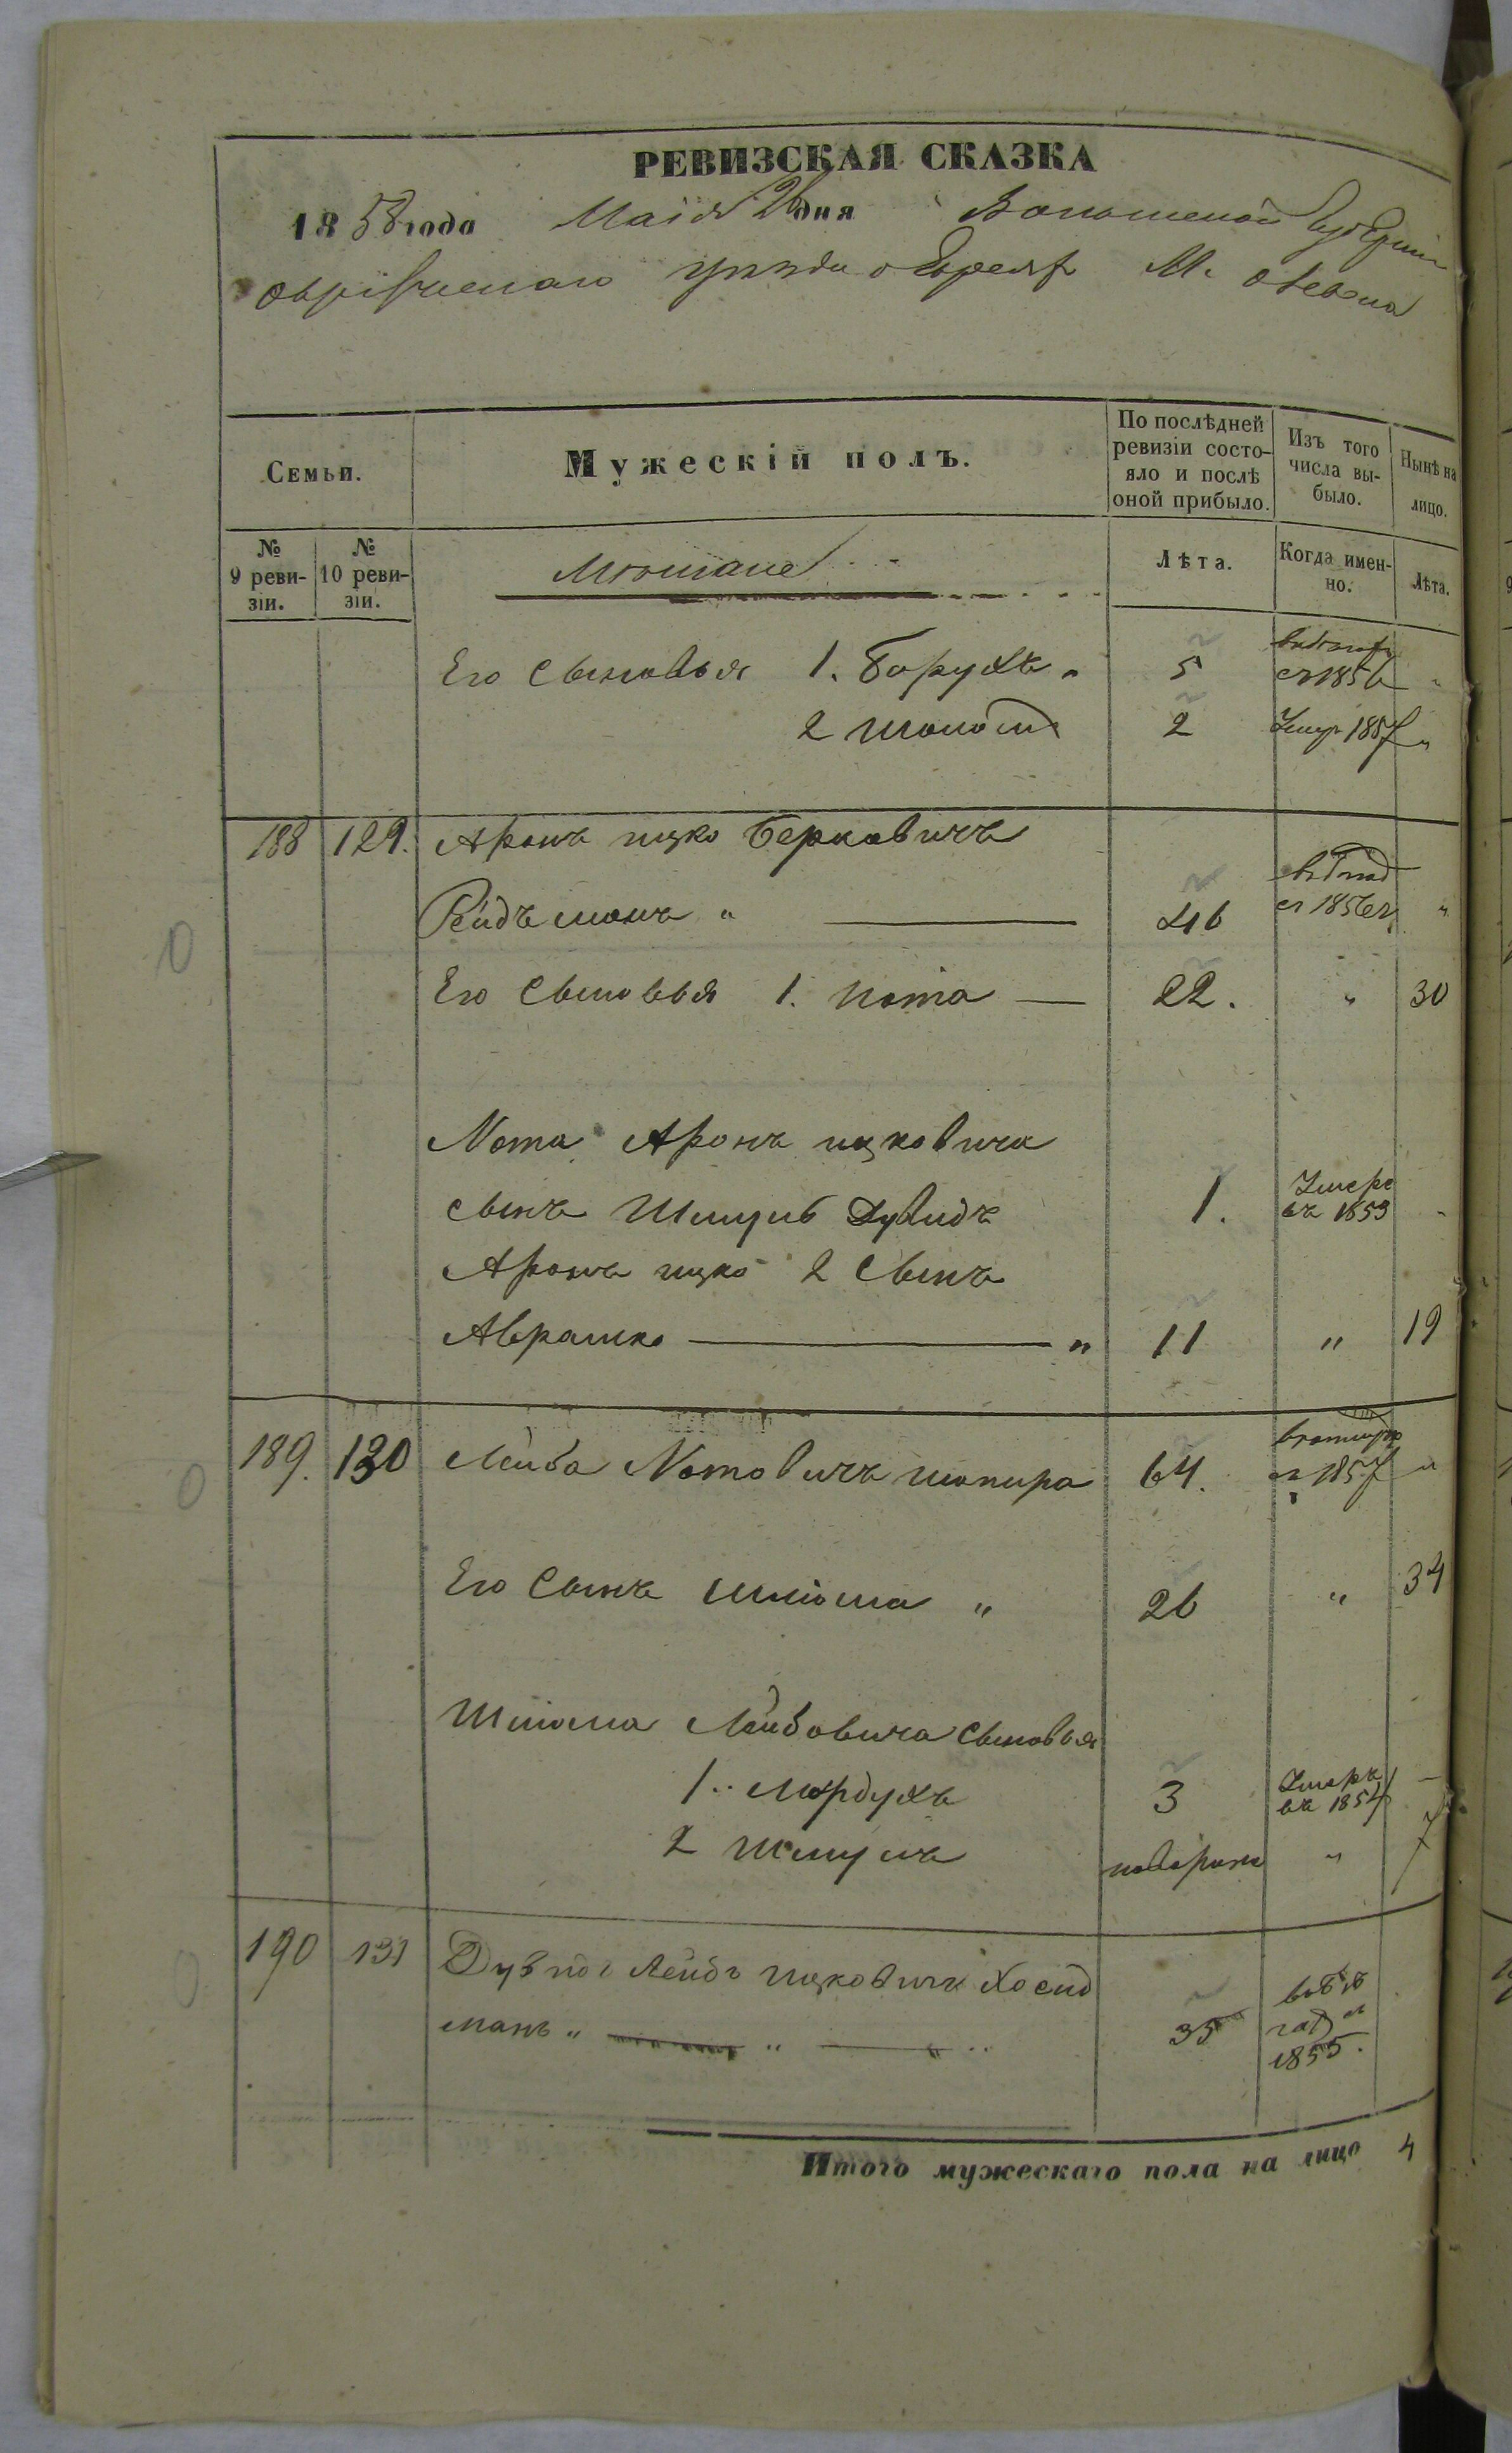 РЕВИЗСКАЯ СКАЗКА
1858 года Маія 26 дня Волынской Губерніи
Овручскаго уѣзда о Евреяхъ М.
Семьи.
Мужескій полъ.
По послѣдней ревизіи состо-
яло и послѣ
оной прибыло.
Изъ того
числа вы-
было.
Нынѣ на
лицо.
№
9 реви-
зіи.
№
10 реви-
зіи.
Мѣщане
Лѣта.
Когда имен-
но.
Лѣта.
Его Сыновья 1. Борухъ " 5 1856 "
2 Шоломъ 2 Умер 1857 "
188 129. Аронъ ицко Берковичъ
Рейдъманъ " 46 1856 "
Его Сыновья 1. Нота — 22. " 30
Нота Аронъ ицковича
сынъ Шмуль Дувидъ 1. Умеръ въ 1853 -
Аронъ ицко 2 Сынъ
Аврамко " 11 " 19
189. 130 Лейба Нотовичъ шапира 64. 1857 "
Его Сынъ Шліома " 26 " 34
Шліома Лейбовича сыновья
1. Мордухъ 3 Умеръ въ 1854 -
2 Шмуль новорож " 7
190 131 Лейбъ ицковичъ Хосид
манъ " " " 35 1855.
Итого мужескаго пола на лицо 4